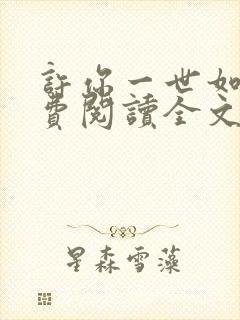 許你一世如
費閱讀全文
星森雪藻